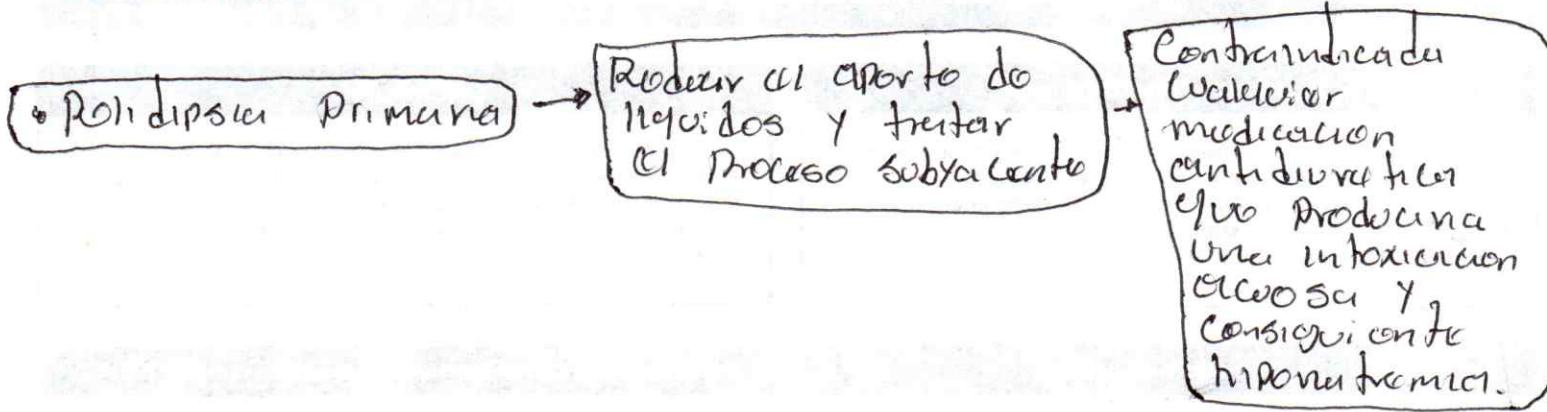 • Polidipsia Primaria
Reducir el aporte de
líquidos y tratar
el Proceso subyacente
Contraindicada
cualquier
medicación
antidiuretica
que Produciria
una intoxicacion
acuosa y
consiguiente
hiponatremia.